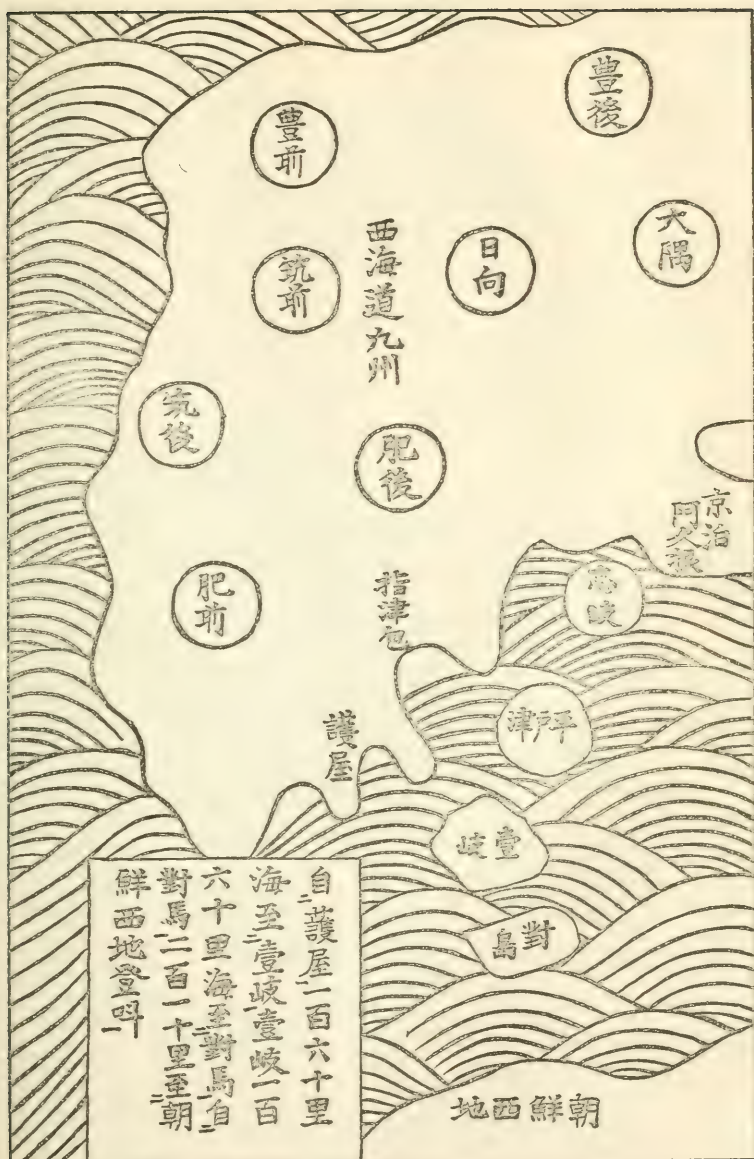 豊後
豊前
大隅
日向
筑前
西海道九州
筑後
肥後
京治
門久振
肥前
指津包
志岐
平戸津
護屋
壹岐
對島
自護屋一百六十里
海至壹岐壹岐一百
六十里海至對馬自
對馬二百一十里至朝
鮮西地登呌
朝鮮西地